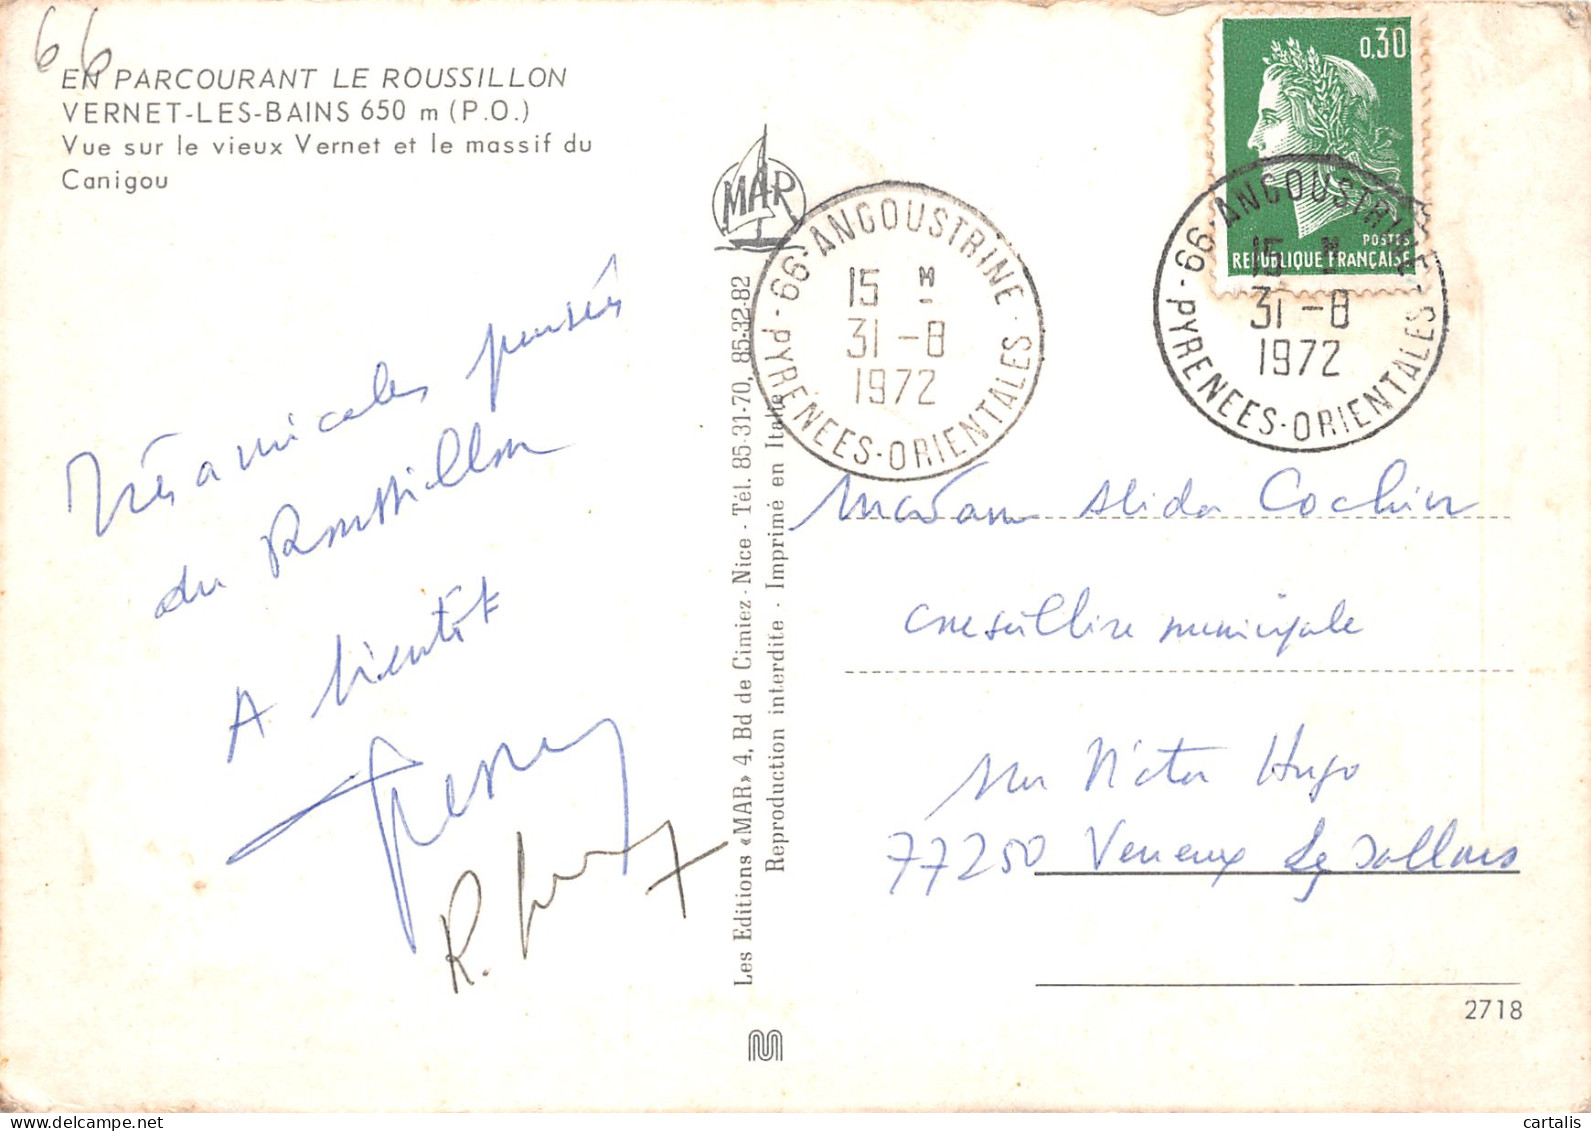 66
EN PARCOURANT LE ROUSSILLON
VERNET-LES-BAINS 650 m (P.O.)
Vue sur le vieux Vernet et le massif du
Canigou
Très amicales pensées
du Roussillon
A bientôt
R.
MAR
Les Editions «MAR» 4, Bd de Cimiez - Nice - Tél. 85-31-70, 85-32-82
Reproduction interdite - Imprimé en Italie
66-ANGOUSTRINE
15 H
31-8
1972
PYRENEES-ORIENTALES
0,30
POSTES
REPUBLIQUE FRANÇAISE
66-ANGOUSTRINE
15 H
31-8
1972
PYRENEES-ORIENTALES
Madame Alida Cochin
conseillère municipale
rue Victor Hugo
77250 Veneux les Sablons
2718
cartalis